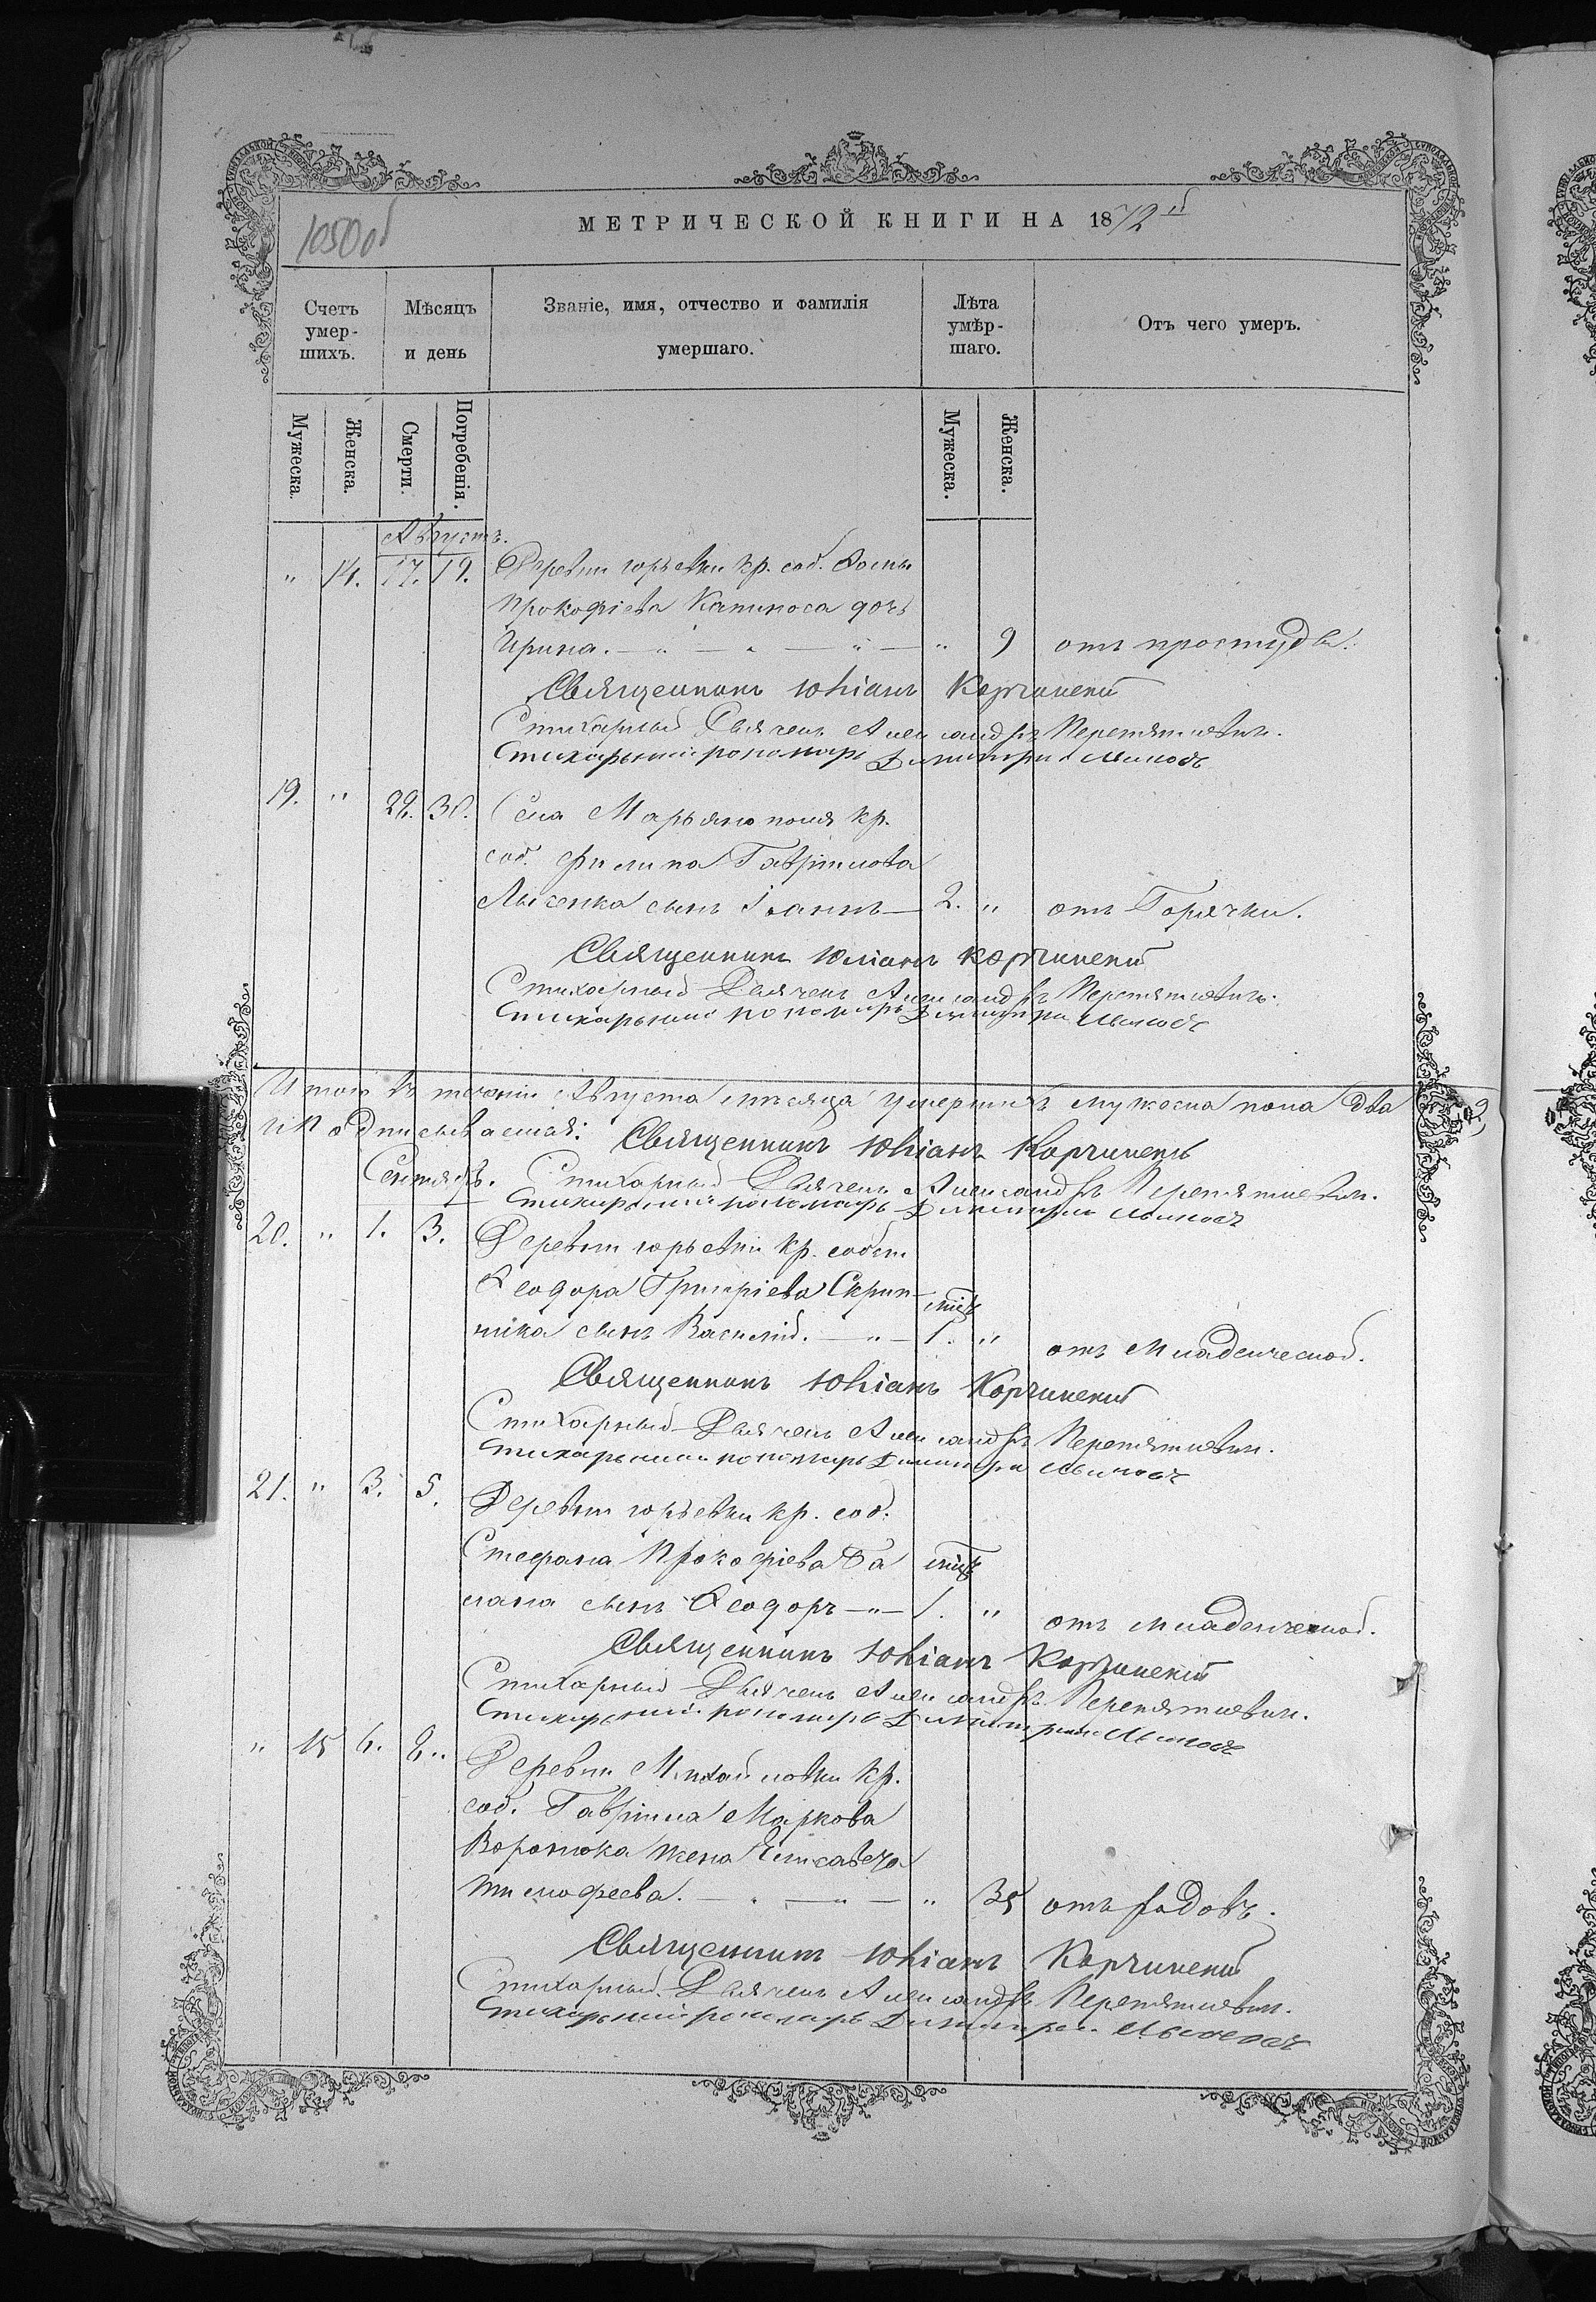 1050об
МЕТРИЧЕСКОЙ КНИГИ НА 1872й
Счетъ умер-шихъ.
Мѣсяцъ и день
Званіе, имя, отчество и фамилія умершаго.
Лѣта умѣр-шаго.
Отъ чего умеръ.
Мужеска.
Женска.
Смерти.
Погребенія.
Мужеска.
Женска.
Августъ.
" 14. 17. 19. Деревни Юрьевки кр. соб. Фомы
Прокофіева Капиноса дочь
Ирина. — " — " — " — " 9 отъ простуды.
Священникъ Юліанъ Корчинскій
Стихарный Дьячекъ Александръ Перетятковичъ.
Стихарный пономарь Димитрій
19. " 28. 30. Села Марьянополя кр.
соб. Филипа Гавріилова
Лысенка сынъ Іоаннъ — 2. " отъ Горячки.
Священникъ Юліанъ Корчинскій
Стихарный Дьячекъ Александръ Перетятковичъ.
Стихарный пономарь Димитрій
Итого въ теченіи Августа мѣсяца умершихъ мужеска пола два
и Подписываемся: Священникъ Юліанъ Корчинскій
Сентябрь. Стихарный Дьячекъ Александръ Перетятковичъ.
Стихарный пономарь Димитрій
20. " 1. 3. Деревни Юрьевки кр. собст.
Ѳеодора Григоріева Скрип-
ника сынъ Василій. — " — 1. мѣц " отъ Младенческой.
Священникъ Юліанъ Корчинскій
Стихарный Дьячекъ Александръ Перетятковичъ.
Стихарный пономарь Димитрій
21. " 3. 5. Деревни Юрьевки кр. соб.
Стефана Прокофіева Га мѣц
лана сынъ Ѳеодоръ — " — 1. " отъ младенческой.
Священникъ Юліанъ Корчинскій
Стихарный Дьячекъ Александръ Перетятковичъ.
Стихарный пономарь Димитрій
" 15 6. 8. Деревни Михайловки кр.
соб. Гавріила Маркова
Воронюка жена Елисавета
Тимофеева. — " — " — " 35 отъ родовъ.
Священникъ Юліанъ Корчинскій
Стихарный Дьячекъ Александръ Перетятковичъ.
Стихарный пономарь Димитрій